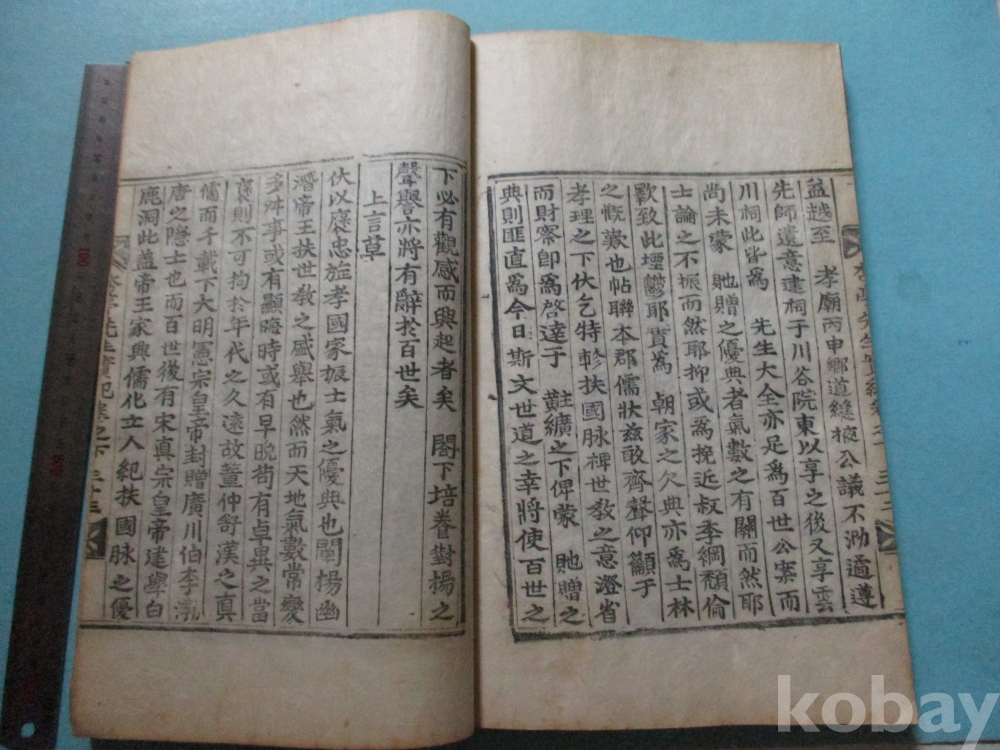 益越至 孝廟丙申鄕道縫掖公議不泐適遵
先師遺意建祠于川谷院東以享之後又享雲
川祠此皆爲 先生大全亦足爲百世公案而
尚未蒙 貤贈之優典者氣數之有關而然耶
士論之不振而然耶抑或爲挽近叔季綱頹倫
斁致此堙鬱耶實爲 朝家之欠典亦爲士林
之慨歎也帖聯本郡儒狀玆敢齊聲仰籲于
孝理之下伏乞特軫扶國脉裨世敎之意澄省
而財察卽爲啓達于 黈纊之下俾蒙 貤贈之
典則匪直爲今日斯文世道之幸將使百世之
下必有觀感而興起者矣 閤下培養對揚之
聲譽亦將有辭於百世矣
上言草
伏以褒忠旌孝國家振士氣之優典也闡揚幽
潛帝王扶世敎之盛擧也然而天地氣數常變
多舛事或有顯晦時或有早晩苟有卓異之當
褒則不可拘於年代之久遠故董仲舒漢之眞
儒而千載下大明憲宗皇帝封贈廣川伯李渤
唐之隱士也而百世後有宋眞宗皇帝建學白
鹿洞此盖帝王家興儒化立人紀扶國脉之優
先生實紀卷之下 三十三
kobay